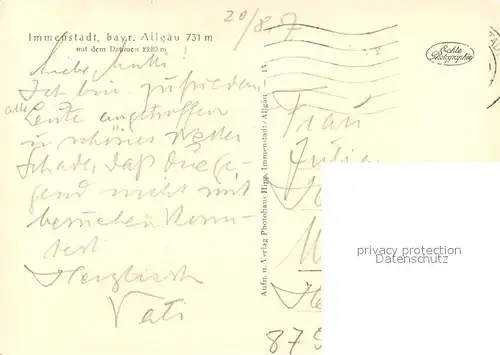 20/8.7
Immenstadt, bayr. Allgäu 731 m
mit dem Daumen 2280 m
Liebe Mutti!
Ich bin zufrieden,
alle
Leute angetroffen
schönes Wetter
Schade, daß Du
gend nicht mit
besuchen konn-
test
Herzlichst
Vati
Aufn. u. Verlag Photohaus Hipp, Immenstadt/Allgäu — 15
Echte
Photographie
Frau
Julia
privacy protection
(Datenschutz)